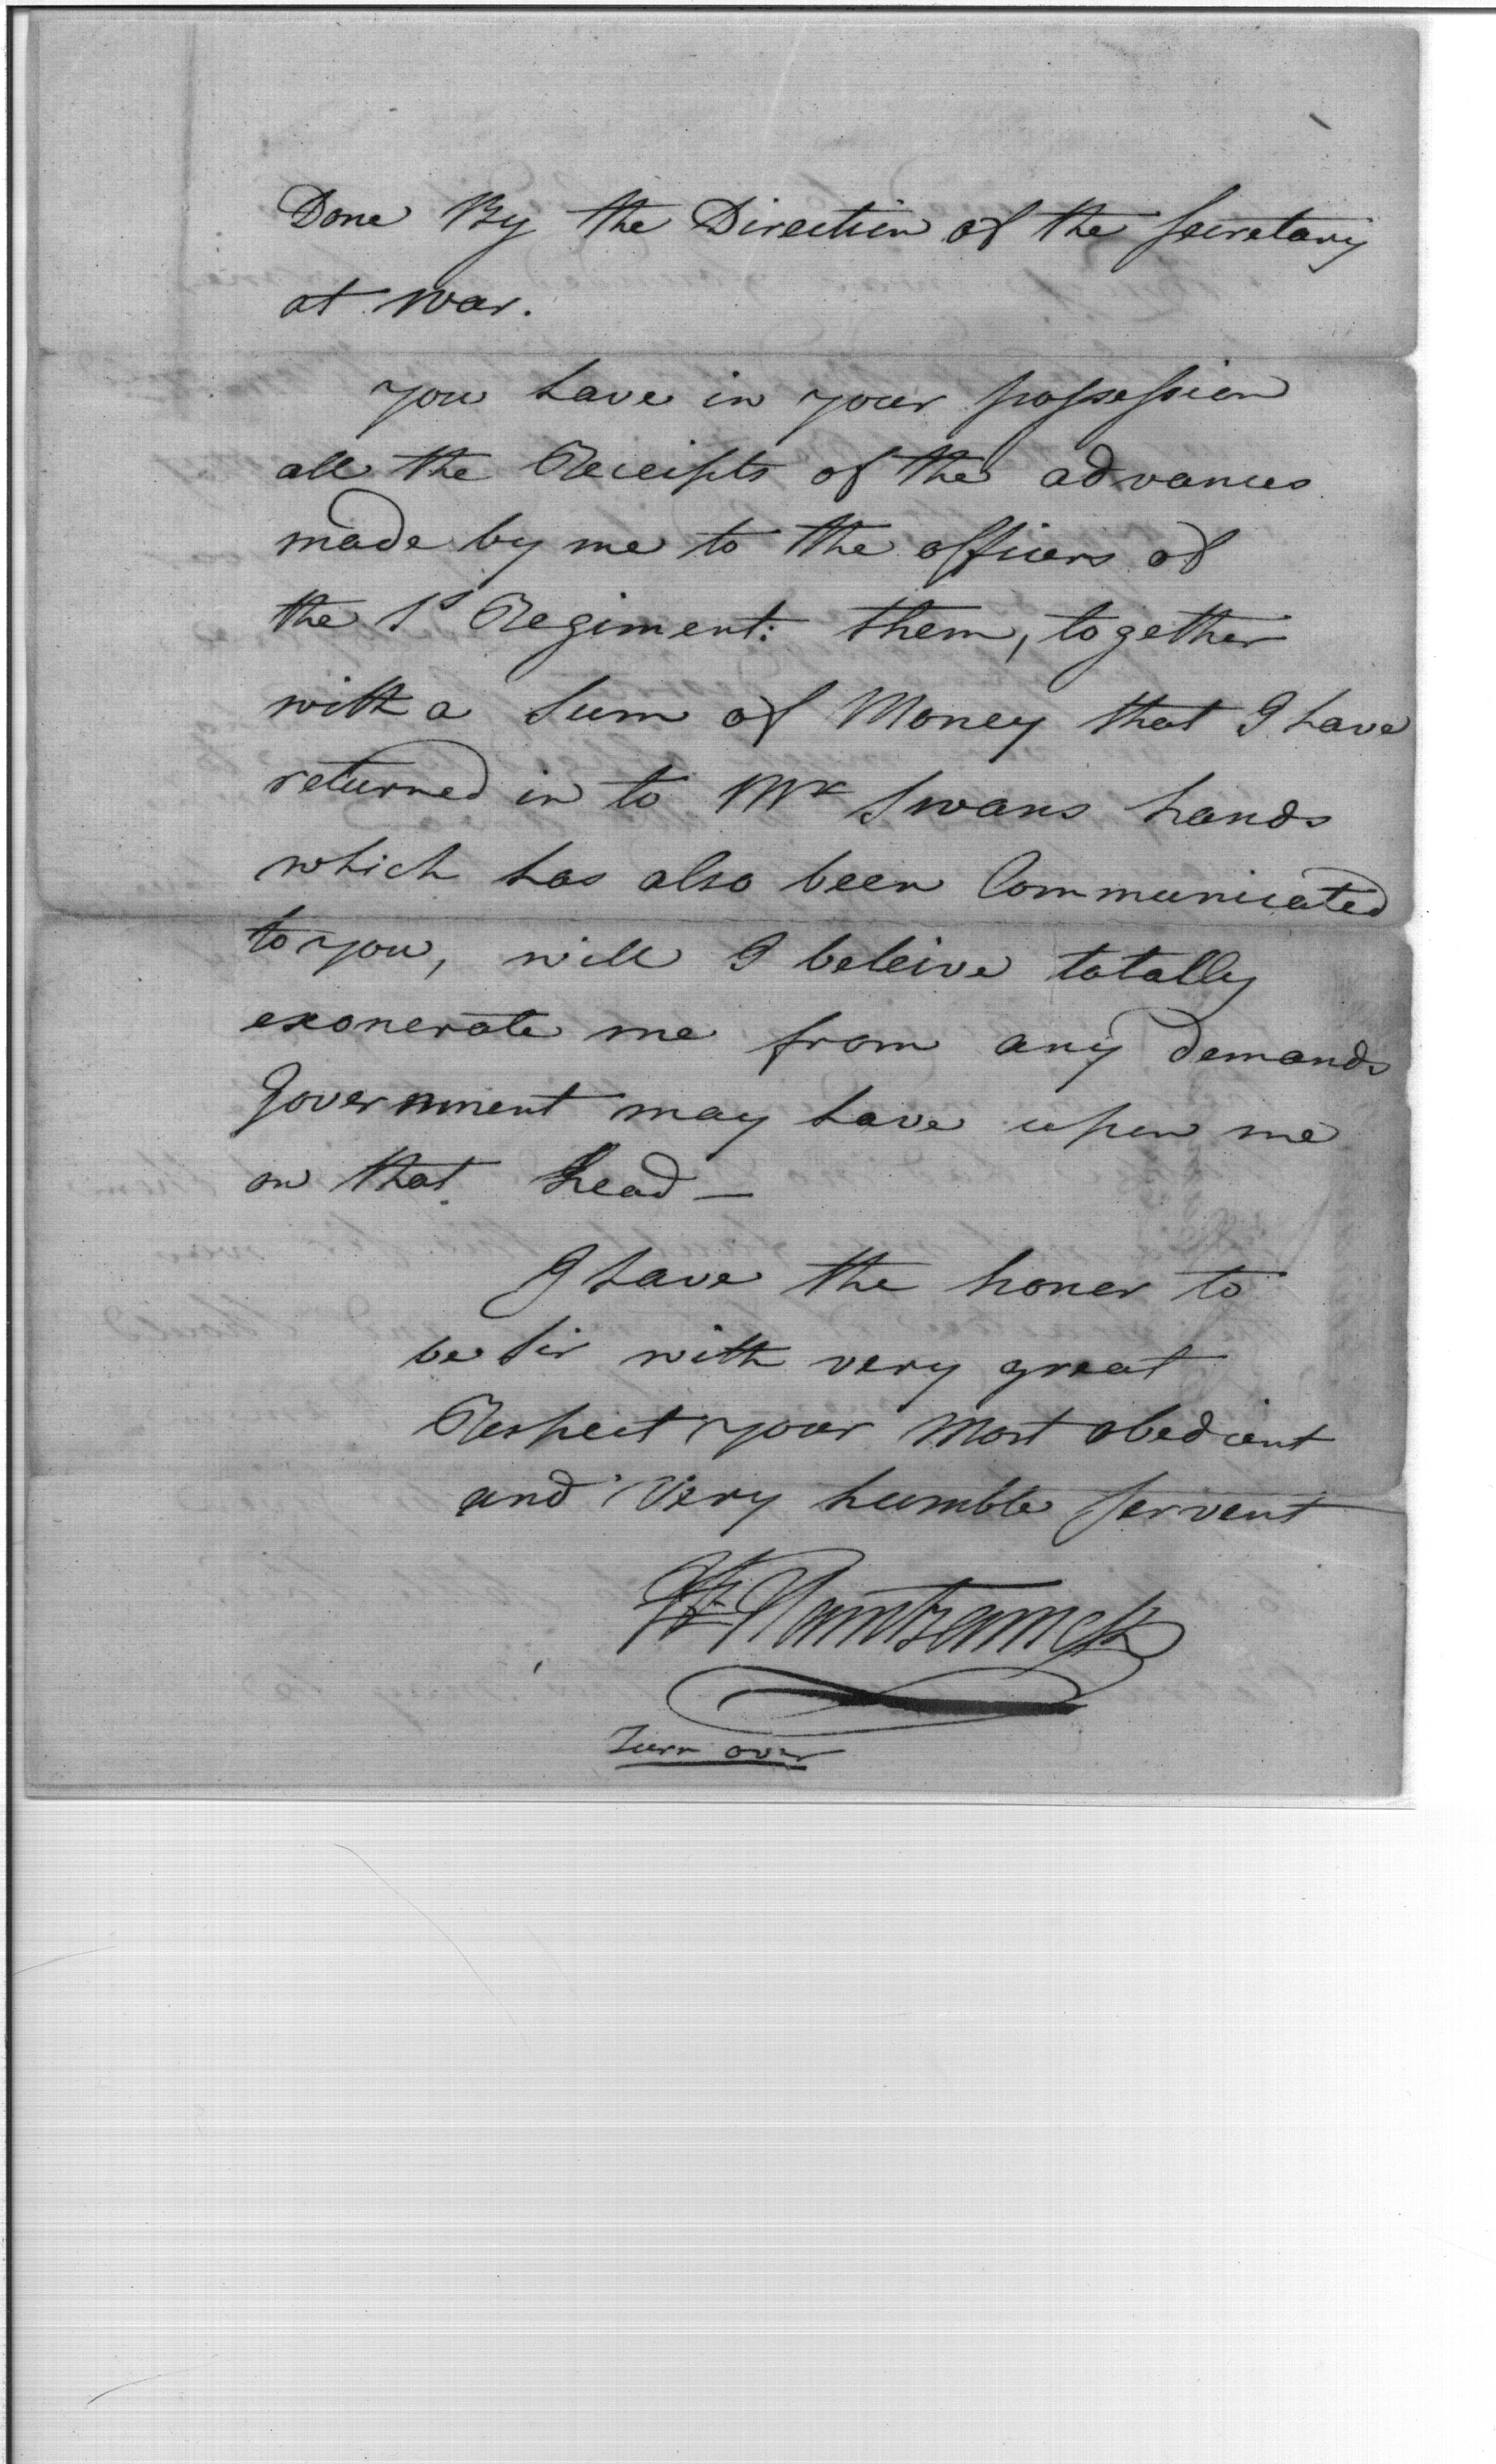 Done By the Direction of the Secretary
at war.
you have in your possession
all the Receipts of the advances
made by me to the officers of
the 1st Regiment: them, together
with a Sum of Money that I have
returned in to Mr Swans hands
which has also been Communicated
to you, will I beleive totally
exonerate me from any demands
Government may have upon me
on that head —
I have the honer to
be Sir with very great
Respect your most obedient
and Very humble Servent
Hamtramck
Turn over